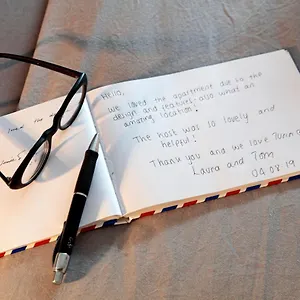 Hello,
we loved the apartment due to the
design and features also what an
amazing location!
The host was so lovely and
helpful!
Thank you and we love
Laura and Tom
04.08.19